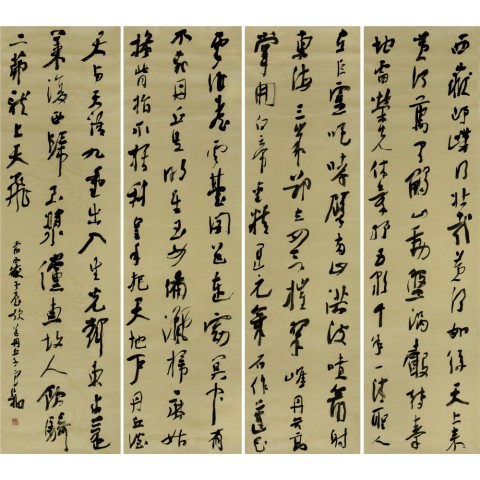 西嶽崢嶸何壯哉黃河如絲天上來
黃河萬里觸山動盤渦轂轉秦
地雷榮光休氣紛五彩千年一清聖人
在巨靈咆哮擘兩山洪波噴箭射
東海三峰卻立如欲摧翠峰丹谷高
掌開白帝金精運元氣石作蓮花
雲作臺雲臺閣道連窈冥中有
不死丹丘生明星玉女備灑掃麻姑
搔背指爪輕我皇手把天地戶丹丘談
天與天語九重出入生光輝東求蓬
萊復西歸玉漿儻惠故人飲騎
二茅龍上天飛